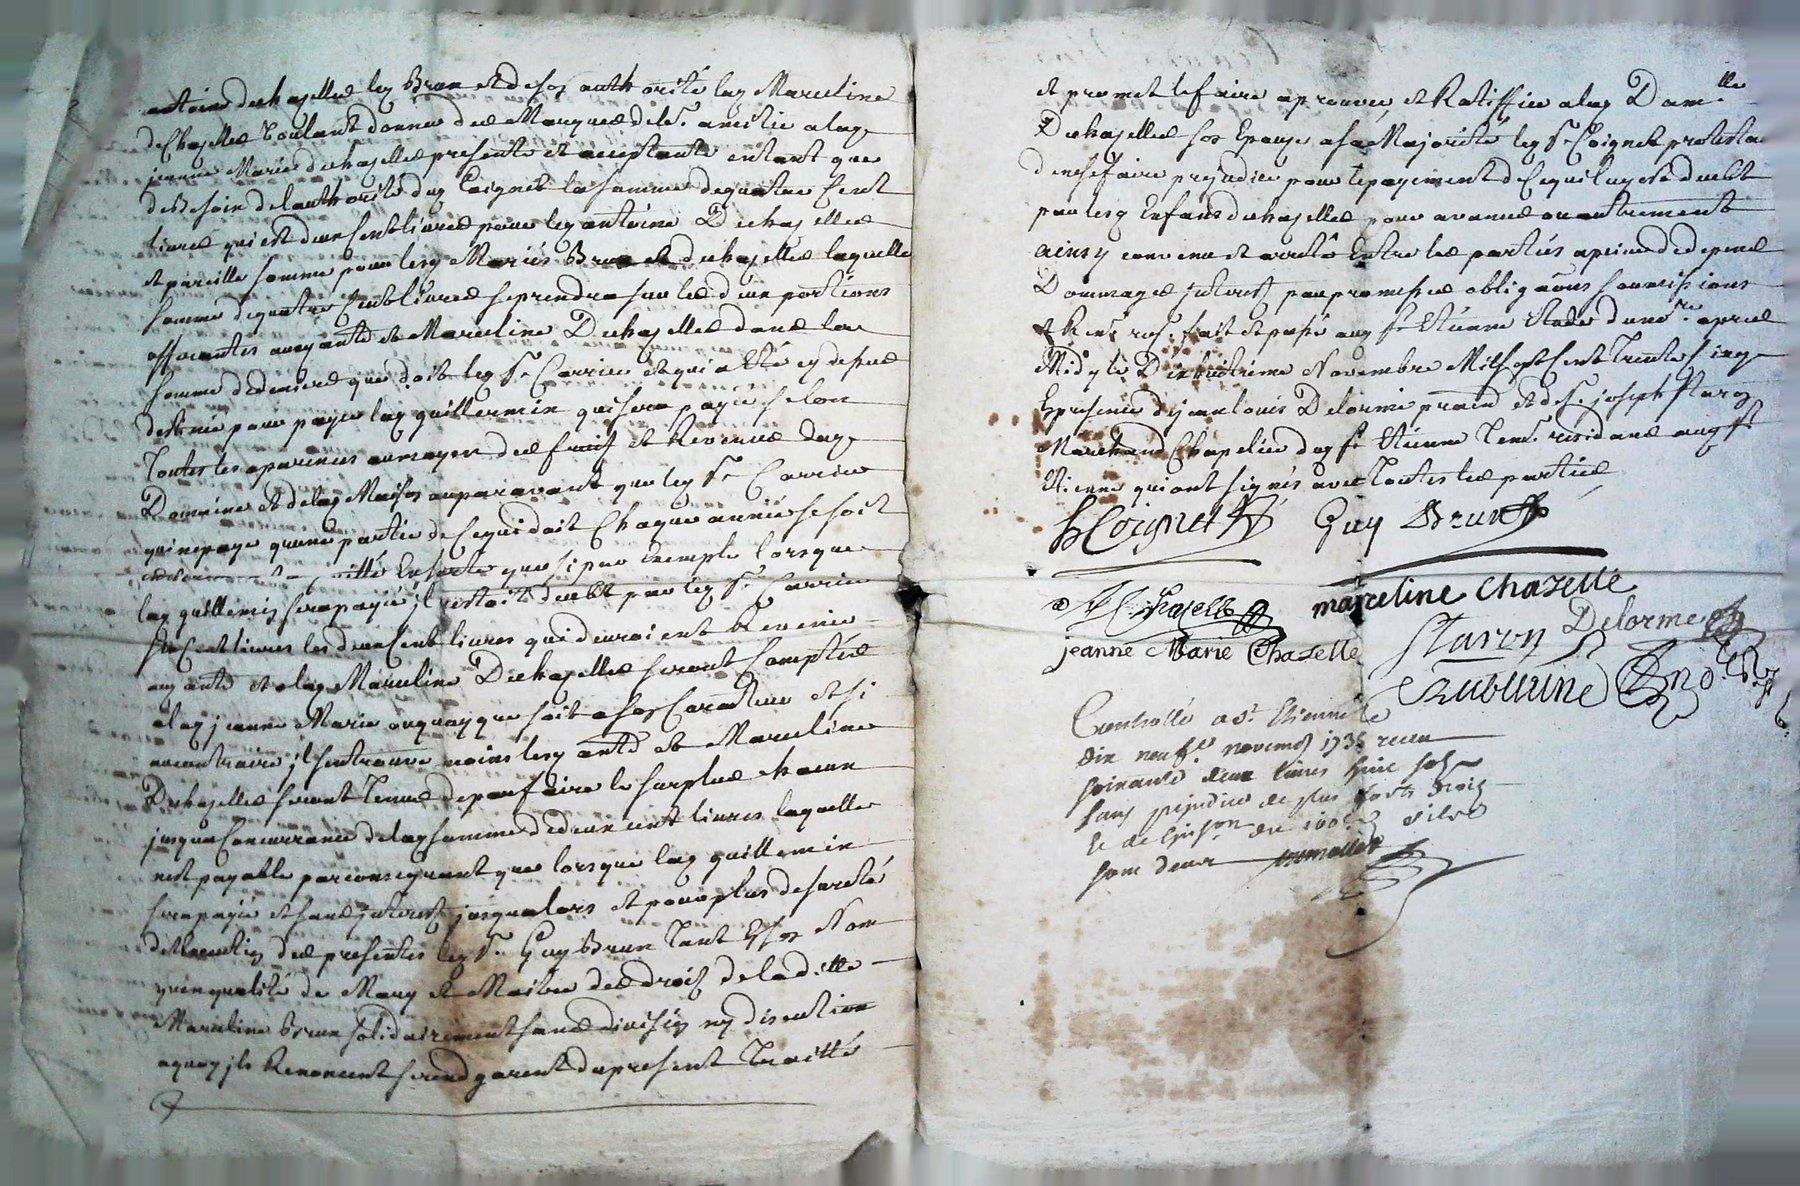 antoine duchaselles ley Brun et de son authorité lay Marceline
deChaselles voulant donner des Marques de leur amitié a lad
jeanne Marie duchaselles presente et acceptante entant que
de Besoin de lauthorité dud Coignet la somme de quatre Cent
livres qui est deux Cent livres pour ley antoine Duchaselles
et pareille somme pour lesq Mariés Brun et duchaselles laquelle
somme de quatre Cent livres se prendra sur les deux portions
afferantes auxq antoine et Marceline Duchaselles dans la
somme de deniers que doit ley Sr Carrier et qui a Eté cy dessus
destinée pour payer lay guillermin qui sera payé selon
Toutes les aparences au moyen des fruits et Revenus dud
Domaine et de lay Maison auparavant que ley Sr Carrier
qui ne paye qune partie de Ce qui doit Chaque année se soit
Ensorte que si par Exemple lorsque
lay guillermin sera payé jl restoit deubt par ley Sr Carrier
six Cent livres les deux Cent livres qui devroient Revenir
auxq antoine et alay Marceline Duchaselles seront Comptées
alay jeanne Marie ou quoy que soit a son Carrier et si
au contraire jl sen trouve moins lesq antoine et Marceline
Duchaselles seront Tenus de parfaire le surplus chacun
jusqua Concurrance de lay somme de deux cent livres laquelle
nest payable par consequant que lorsque lay guillermin
sera payé et sans jnterest jusqualors et pour plus de sureté
de lexecution des presentes ley Sr Guy Brun Tant En son Nom
quen qualité de Mary et Maitre des droits de laditte
Marceline Brun solidairement sans division ny discution
aquoy jls Renoncent se rend garent du present Traitté
et promet le faire aprouver et Ratiffier alay Damlle
Duchaselles son Epouse a sa Majorité ley Sr Coignet protestant
de ne se faire prejudice pour le payement de Ce qui luy est deubt
par lesq Enfans duchaselles pour avance ou autrement
ainsy convenu et arreté Entre les parties a peine de depens
Dommages jnterest par promesses obligaõns soumissions
et Renõns fait et passé auq St Etienne Etude du nore apres
Midy le Dixhuitieme Novembre Mil sept Cent Trente Cinq
En presence de jean louis Delorme praticien et de Sr joseph Staron
Marchand Chapelier dud St Etienne Tems residans auq St
Etienne qui ont signés avec Toutes les parties
Coignet Guy Brun
Chaselle marceline Chazelle
jeanne Marie Chazelle Staron Delorme
Controllé a St Etienne le
dix neufe novembre 1735 receu
soixante deux livres huit sols
sans prejudice de plus forts droits
som deux